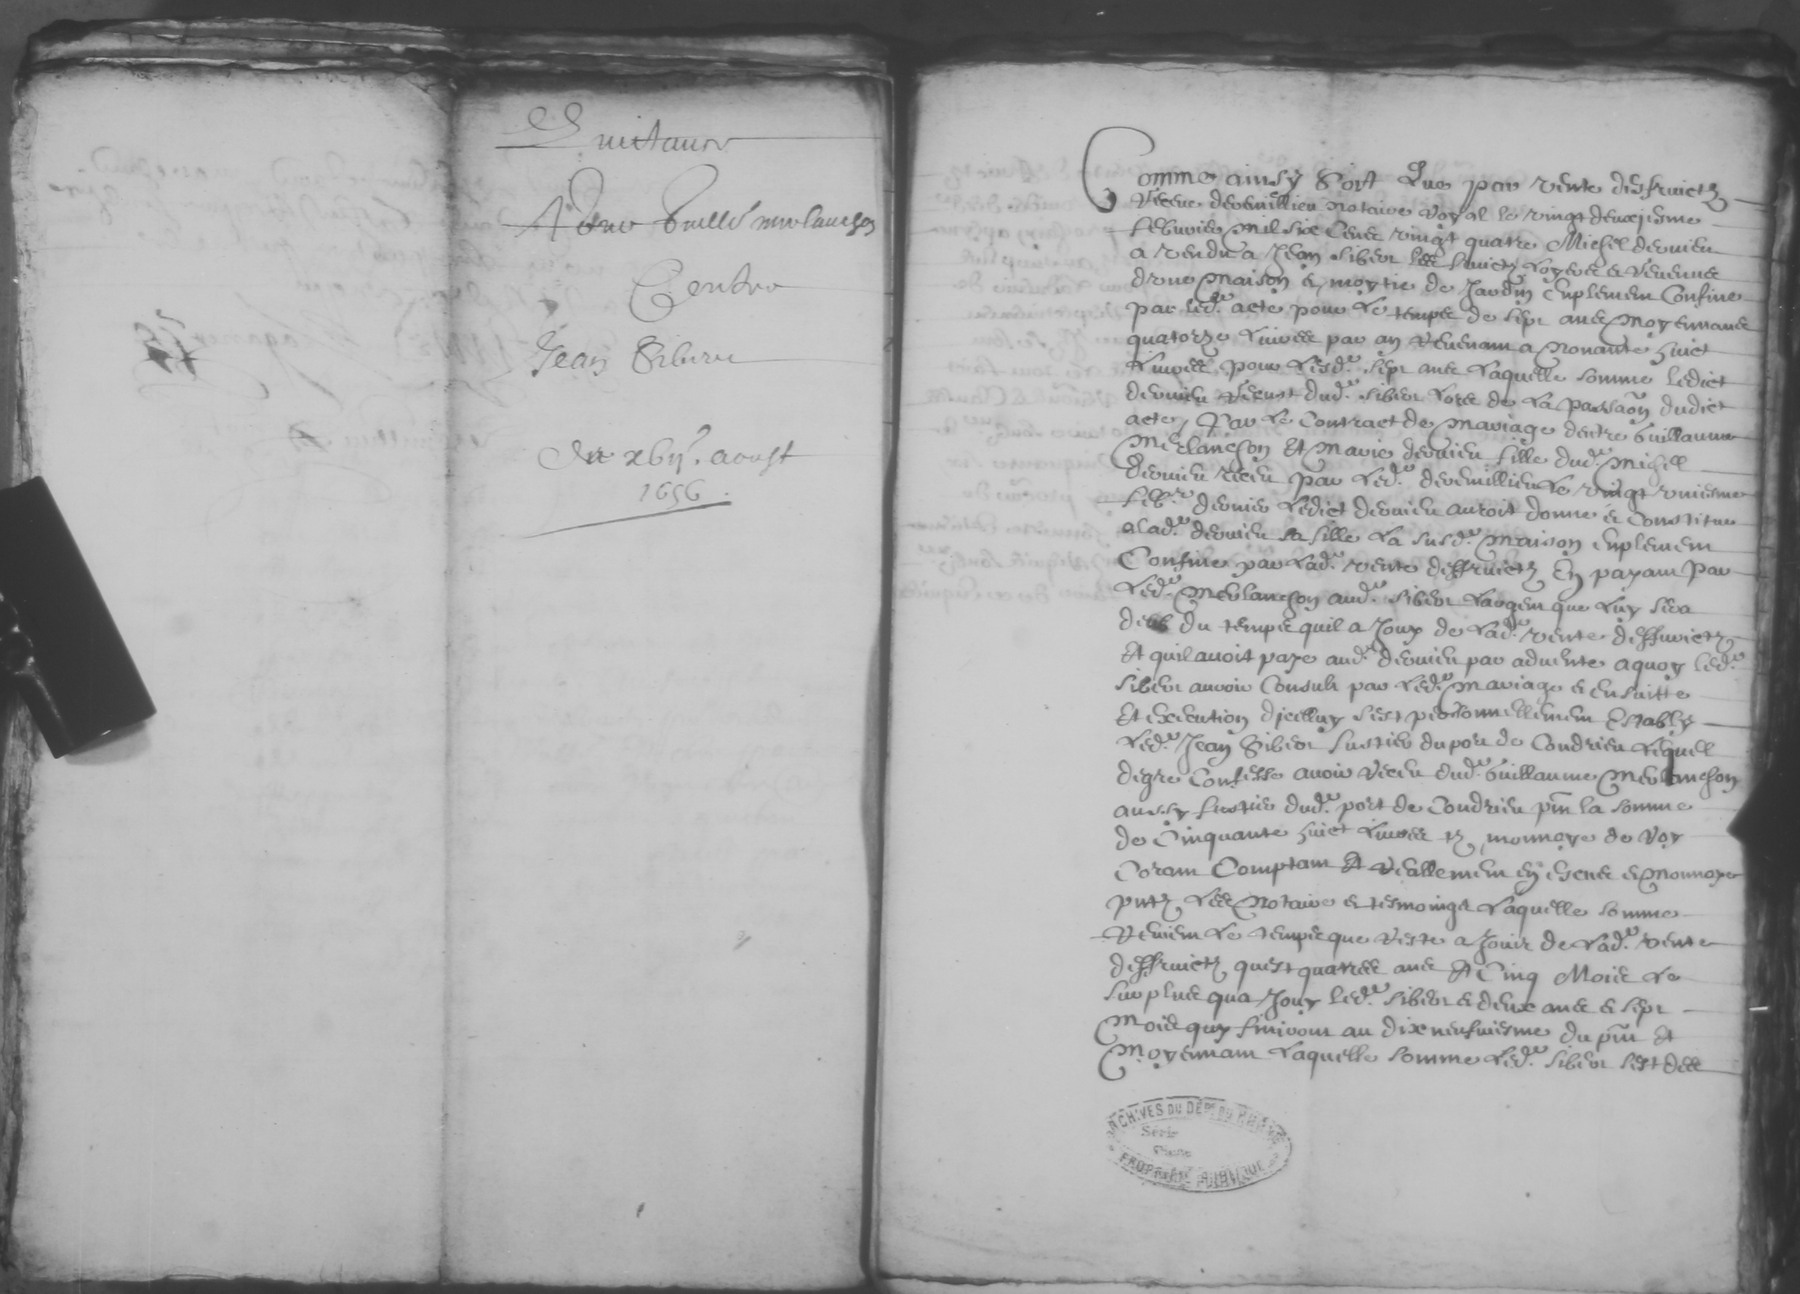 Quittance
A dno Guille merlançon
Contre
Jean Siberu
Du xbij.e aoust
1656.
Comme ainsy Soit Que par vente desfruictz
Receue devenillieu notaire Royal le vingt deuxjesme
febvrier Mil six Cens vingt quatre Michel dervieu
a vendu a Jean Siber les fruictz Loyers et revenus
dune Maison et moytie de Jardin Emplement Confine
par led. acte pour Le temps de sept ans Moyennant
quatorze Livres par an Revenant a Nonante huict
Livres pour Lesd. sept ans Laquelle somme ledict
dervieu Receust dud. siber Lors de La passaon dudict
acte, Par Le Contract de Mariage dentre Guillaume
Merlançon Et Marie dervieu fille dud. Michell
dervieu receu par Led. devenillieu Le vingt uniesme
febr. dernier Ledict dervieu auroit donne et Constitue
a lad. dervieu sa fille La susd. Maison emplement
Confine par Lad. vente desfruictz En payant Par
Led. Merlançon aud. siber Largent que Luy sera
deub du temps quil a Jouy de Lad. vente desfruictz
Et quil avoit paye aud. dervieu par advance a quoy led.
siber auroit Consenti par Led. Mariage et en suitte
Et execution djcelluy sest personnellement Estably
Led. Jean Siber fustier du port de Condrieu Lequell
degre Confesse avoir Receu dud. Guillaume Merlançon
aussy fustier dud. port de Condrieu pnt la somme
de Cinquante huict Livres tz monnoye de Roy
Coram Comptant Et reallement en escus et Monnoye
pntz Les Notaire et tesmoings Laquelle somme
Revient Le temps que Reste a Jouir de Lad. vente
desfruictz quest quatres ans Et Cinq Mois Le
surplus qua Jouy led. siber et deux ans et sept
Mois quy finiront au dixneufviesme du pnt Et
Moyennant Laquelle somme Led. siber sest des
ARCHIVES DU DÉPT DU RHÔNE
Série
PROPRIÉTÉ PUBLIQUE